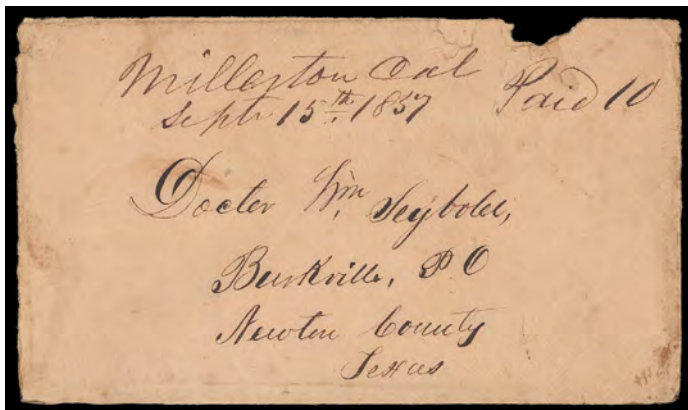 Millerton Cal Paid 10
Septr 15th 1857
Docter Wm Seybolee,
Burkville, P O
Newton County
Texas